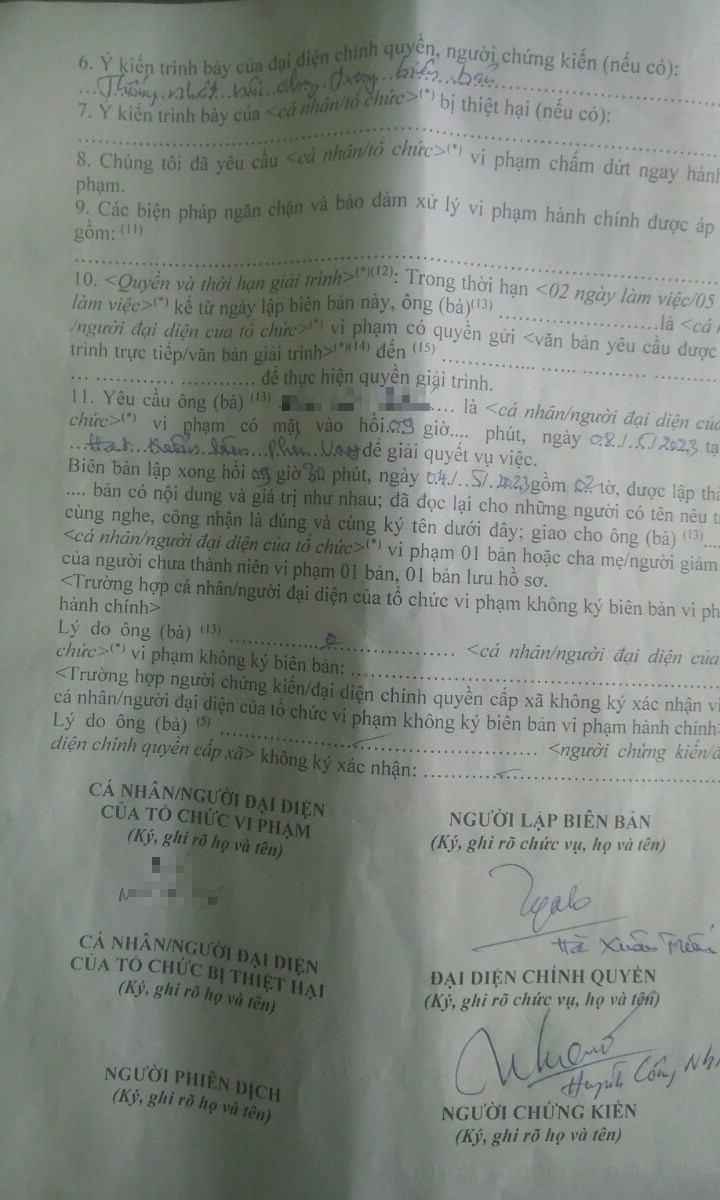 6. Ý kiến trình bày của đại diện chính quyền, người chứng kiến (nếu có):
Thống nhất nội dung trong biên bản
7. Ý kiến trình bày của <cá nhân/tổ chức>(*) bị thiệt hại (nếu có):
8. Chúng tôi đã yêu cầu <cá nhân/tổ chức>(*) vi phạm chấm dứt ngay hành
phạm.
9. Các biện pháp ngăn chặn và bảo đảm xử lý vi phạm hành chính được áp
gồm: (11)
10. <Quyền và thời hạn giải trình>(*)(12): Trong thời hạn <02 ngày làm việc/05
làm việc>(*) kể từ ngày lập biên bản này, ông (bà)(13) ........................là <cá
/người đại diện của tổ chức>(*) vi phạm có quyền gửi <văn bản yêu cầu được
trình trực tiếp/văn bản giải trình>(*)(14) đến (15) ........................
... ............ ............ để thực hiện quyền giải trình.
11. Yêu cầu ông (bà) (13) .... là <cá nhân/người đại diện của
chức>(*) vi phạm có mặt vào hồi.09 giờ.... phút, ngày 08./.5/2023 tạ
...Hạt Kiểm lâm để giải quyết vụ việc.
Biên bản lập xong hồi 09 giờ 30 phút, ngày 04./..5/.2023gồm 02 tờ, được lập
.... bản có nội dung và giá trị như nhau; đã đọc lại cho những người có tên nêu
cùng nghe, công nhận là đúng và cùng ký tên dưới đây; giao cho ông (bà) (13)....
<cá nhân/người đại diện của tổ chức>(*) vi phạm 01 bản hoặc cha mẹ/người giám
của người chưa thành niên vi phạm 01 bản, 01 bản lưu hồ sơ.
<Trường hợp cá nhân/người đại diện của tổ chức vi phạm không ký biên bản vi ph
hành chính>
Lý do ông (bà) (13) .................................. <cá nhân/người đại diện của
chức>(*) vi phạm không ký biên bản: ..................................
<Trường hợp người chứng kiến/đại diện chính quyền cấp xã không ký xác nhận vi
cá nhân/người đại diện của tổ chức vi phạm không ký biên bản vi phạm hành chính>
Lý do ông (bà) (5) .................................. <người chứng kiến/đ
diện chính quyền cấp xã> không ký xác nhận: ..................................
CÁ NHÂN/NGƯỜI ĐẠI DIỆN
CỦA TỔ CHỨC VI PHẠM
(Ký, ghi rõ họ và tên)
NGƯỜI LẬP BIÊN BẢN
(Ký, ghi rõ chức vụ, họ và tên)
Hà Xuân
CÁ NHÂN/NGƯỜI ĐẠI DIỆN
CỦA TỔ CHỨC BỊ THIỆT HẠI
(Ký, ghi rõ họ và tên)
ĐẠI DIỆN CHÍNH QUYỀN
(Ký, ghi rõ chức vụ, họ và tên)
Huỳnh Công
NGƯỜI PHIÊN DỊCH
(Ký, ghi rõ họ và tên)
NGƯỜI CHỨNG KIẾN
(Ký, ghi rõ họ và tên)